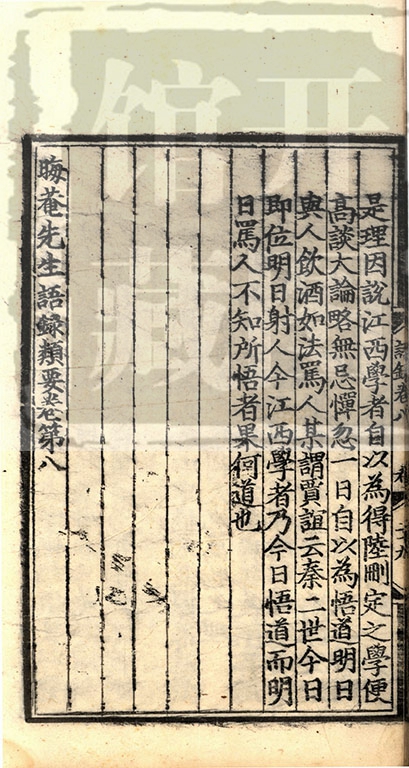 是理因說江西學者自以為得陸刪定之學便
高談大論略無忌憚忽一日自以為悟道明日
與人飲酒如法罵人某謂賈誼云秦二世今日
即位明日射人今江西學者乃今日悟道而明
日罵人不知所悟者果何道也
晦菴先生語錄類要卷第八